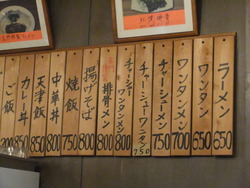 ラーメン 650
ワンタン 650
ワンタンメン 700
チャーシューメン 750
チャーシューワンタン 750
チャーシューワンタンメン 800
排骨メン 800
揚げそば 800
焼飯 750
中華丼 800
天津飯 850
カレー丼 850
ご飯 200